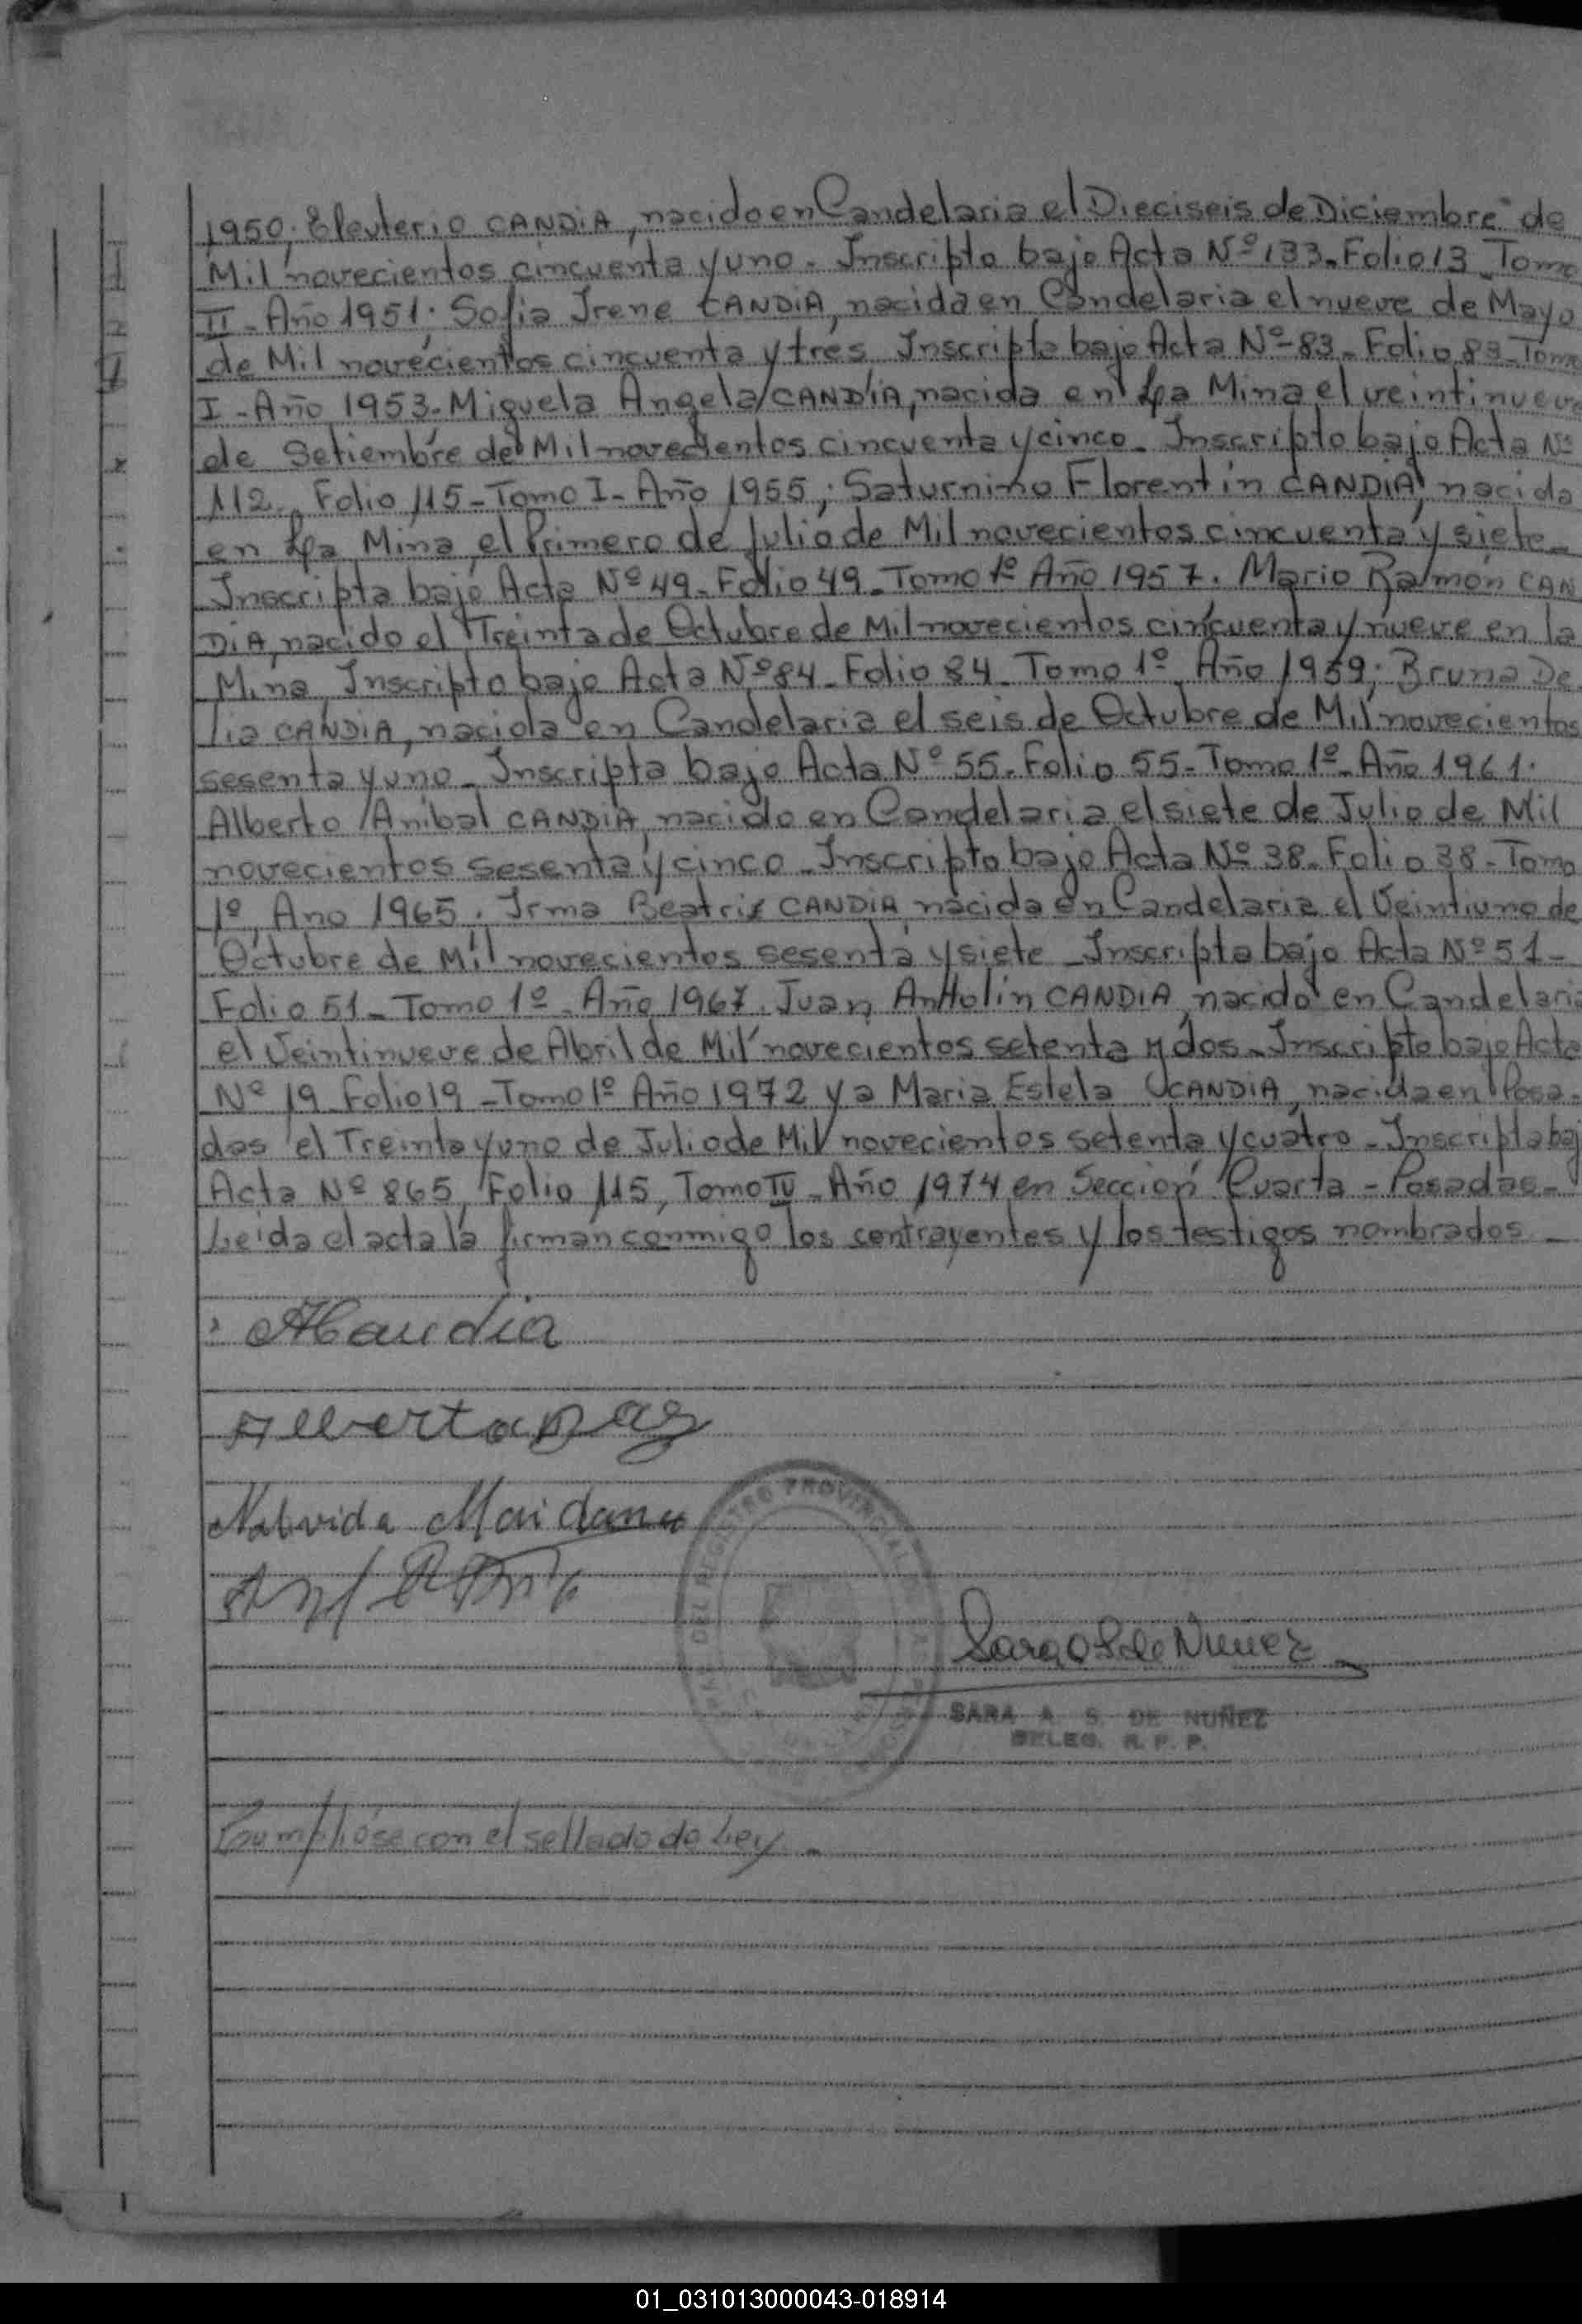 1950; Eleuterio CANDIA, nacido en Candelaria el Dieciseis de Diciembre de
Mil novecientos cincuenta y uno. Inscripto bajo Acta Nº 133. Folio 13 Tomo
II - Año 1951; Sofia Irene CANDIA, nacida en Candelaria el nueve de Mayo
de Mil novecientos cincuenta y tres Inscripta bajo Acta Nº 83 - Folio 83 - Tomo
I - Año 1953. Miguela Angela CANDIA, nacida en La Mina el veintinueve
de Setiembre de Mil novecientos cincuenta y cinco - Inscripto bajo Acta Nº
112. Folio 115 - Tomo I - Año 1955; Saturnino Florentin CANDIA nacida
en La Mina el Primero de Julio de Mil novecientos cincuenta y siete -
Inscripta bajo Acta Nº 49 - Folio 49 - Tomo 1º Año 1957. Mario Ramón CAN
DIA, nacido el Treinta de Octubre de Mil novecientos cincuenta y nueve en la
Mina, Inscripto bajo Acta Nº 84 - Folio 84 - Tomo 1º Año 1959; Bruna De
lia CANDIA, nacida en Candelaria el seis de Octubre de Mil novecientos
sesenta y uno - Inscripta bajo Acta Nº 55 - Folio 55 - Tomo 1º - Año 1961.
Alberto Anibal CANDIA nacido en Candelaria el siete de Julio de Mil
novecientos sesenta y cinco - Inscripto bajo Acta Nº 38 - Folio 38 - Tomo
1º, Año 1965. Irma Beatriz CANDIA, nacida en Candelaria el Veintiuno de
Octubre de Mil novecientos sesenta y siete - Inscripta bajo Acta Nº 51 -
Folio 51 - Tomo 1º - Año 1967. Juan Anttolin CANDIA, nacido en Candelaria
el Veintinueve de Abril de Mil novecientos setenta y dos - Inscripto bajo Acta
Nº 19 Folio 19 - Tomo 1º Año 1972 y a Maria Estela CANDIA, nacida en Posa-
das el Treinta y uno de Julio de Mil novecientos setenta y cuatro - Inscripta baj
Acta Nº 865, Folio 115, Tomo IV - Año 1974 en Sección Cuarta - Posadas -
Leida el acta la firman conmigo los contrayentes y los testigos nombrados -
Candia
Alberta
Maidana
REGISTRO PROVINCIAL
Sara de Nuñez
SARA A. S. DE NUÑEZ
DELEG. R. P. P.
Cumplióse con el sellado de Ley -
01_031013000043-018914